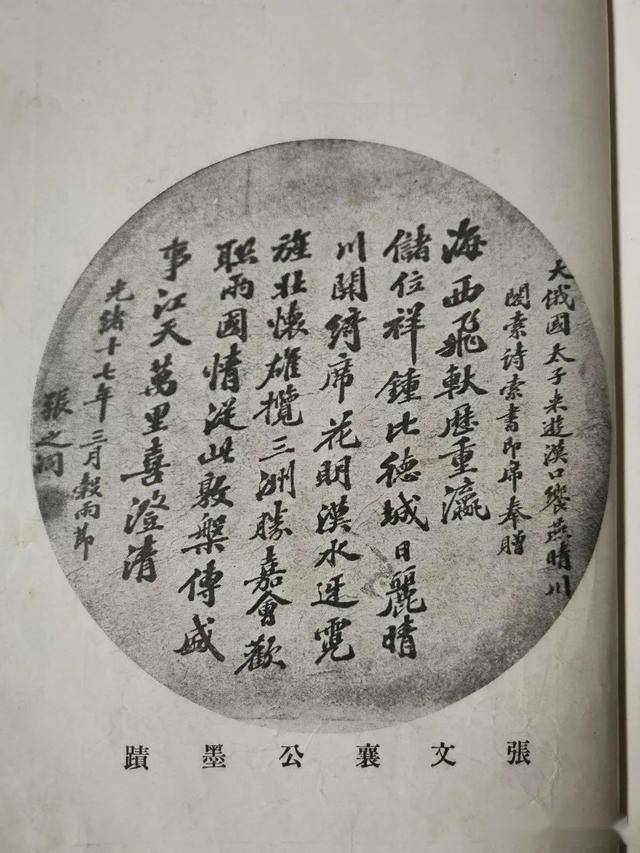 大俄國太子來遊漢口饗燕晴川
閣索詩索書即席奉贈
海西飛軑歷重瀛
儲位祥鍾比德城日麗晴
川開綺席花明漢水迓霓
旌壯懷雄攬三洲勝嘉會歡
聯兩國情從此敦槃傳盛
事江天萬里喜澄清
光緒十七年三月穀雨節
張之洞
張文襄公墨蹟